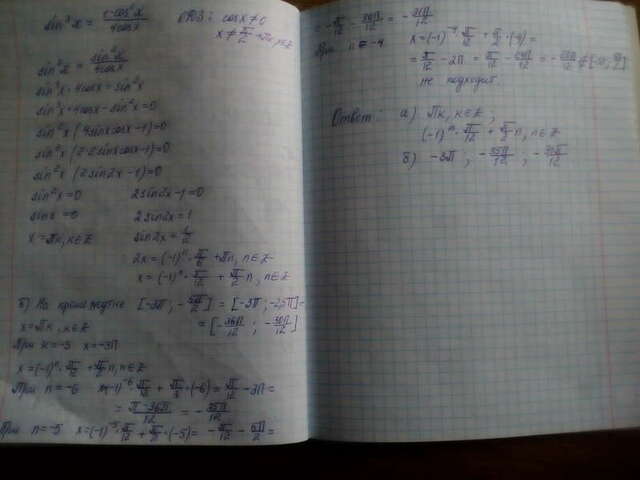 sin³x = (1-cos²x)/(4cosx) ОДЗ: cosx≠0
x≠π/2+πn, n∈Z
sin³x = sin²x/(4cosx)
sin³x · 4cosx = sin²x
sin³x · 4cosx - sin²x = 0
sin²x (4sinxcosx-1)=0
sin²x (2·2sinxcosx-1)=0
sin²x (2sin2x-1)=0
sin²x=0 2sin2x-1=0
sinx=0 2sin2x=1
x=πk, k∈Z sin2x=1/2
2x=(-1)ⁿ·π/6+πn, n∈Z
x=(-1)ⁿ·π/12+π/2 n, n∈Z
б) На промежутке [-3π; -5π/2] = [-3π; -2,5π]=
x=πk, k∈Z = [-36π/12; -30π/12]
При k=-3 x=-3π
x=(-1)ⁿ·π/12+π/2 n, n∈Z
При n=-6 x=(-1)⁻⁶·π/12+π/2·(-6)=π/12-3π=
= (π-36π)/12 = -35π/12
При n=-5 x=(-1)⁻⁵·π/12+π/2·(-5)= -π/12-5π/2=
= -π/12-30π/12 = -31π/12
При n=-4 x=(-1)⁻⁴·π/12+π/2·(-4)=
= π/12-2π = π/12-24π/12 = -23π/12
не подходит.
Ответ: а) πk, k∈Z;
(-1)ⁿ·π/12+π/2 n, n∈Z
б) -3π; -35π/12; -31π/12